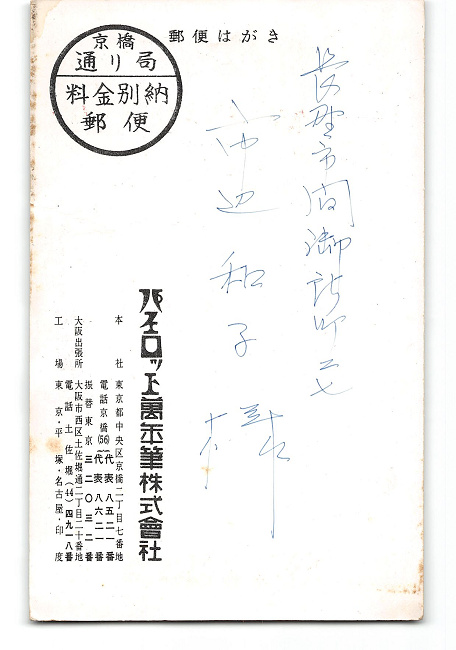 郵便はがき
京橋
通り局
料金別納
郵便
長野市問御所町二七
中辺和子様
パイロット萬年筆株式會社
本社 東京都中央区京橋二丁目七番地
電話京橋(56)代表八五二一番
代表八六二一番
振替東京三二〇三二番
大阪出張所 大阪市西区土佐堀通二丁目二十番地
電話土佐堀(44)四九一八番
工場 東京・平塚・名古屋・印度